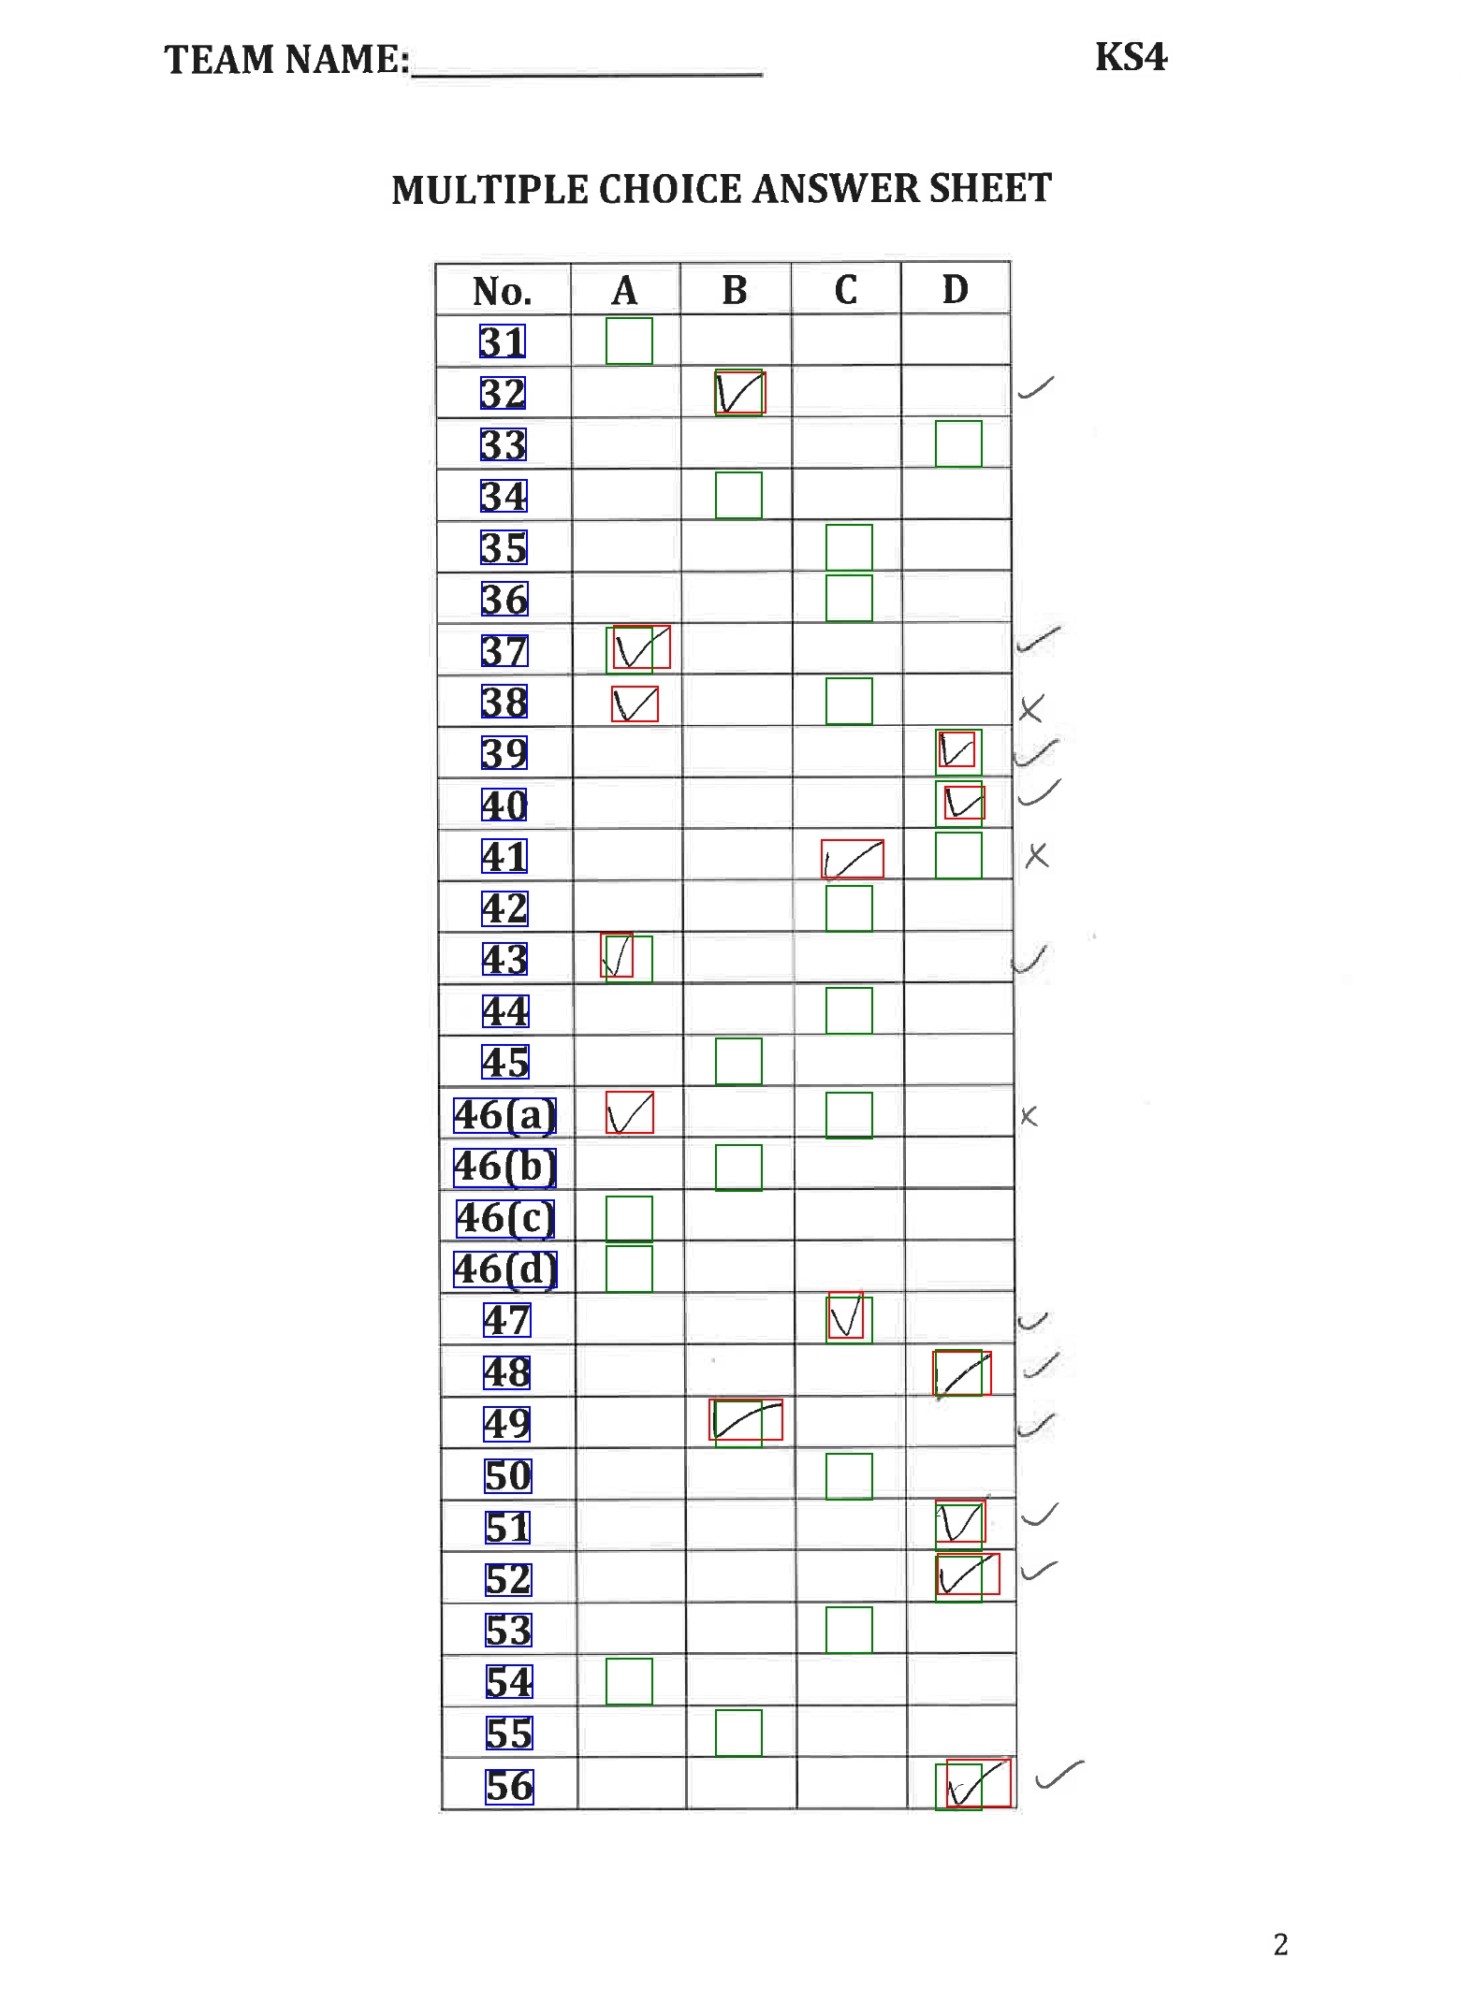 TEAM NAME:
KS4
MULTIPLE CHOICE ANSWER SHEET
No. A B C D
31
32
33
34
35
36
37
38
39
40
41
42
43
44
45
46(a)
46(b)
46(c)
46(d)
47
48
49
50
51
52
53
54
55
56
2